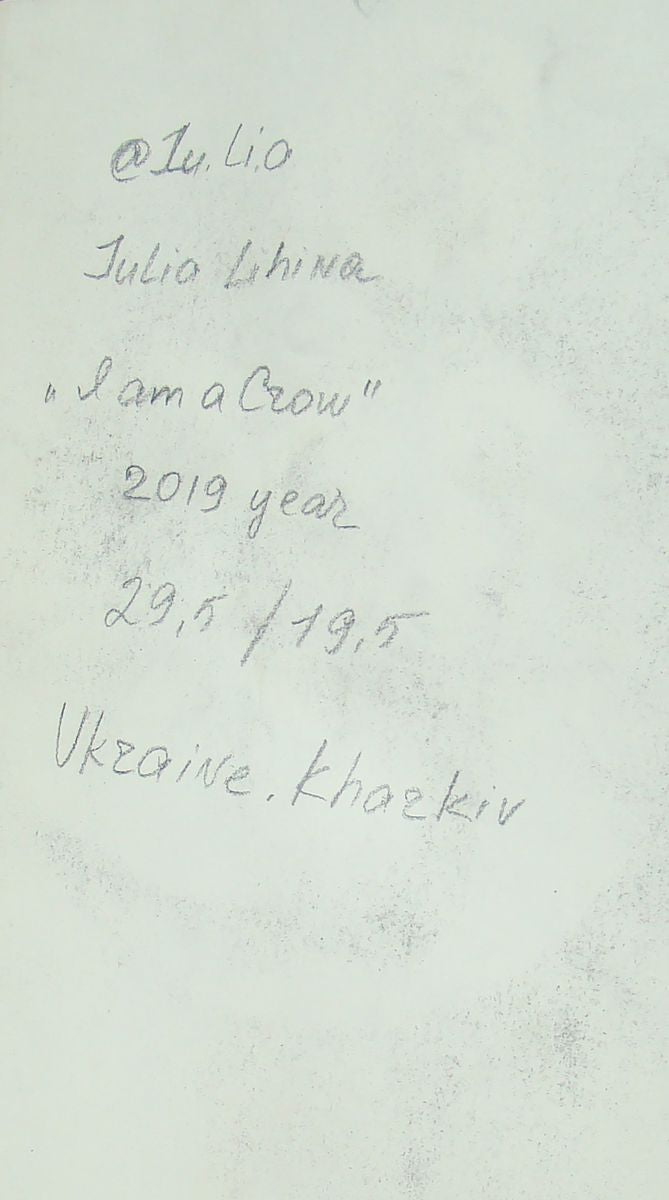 @Iu.Li.a
Iulia Lihina
„I am a Crow"
2019 year
29,5 / 19,5
Ukraine. Kharkiv